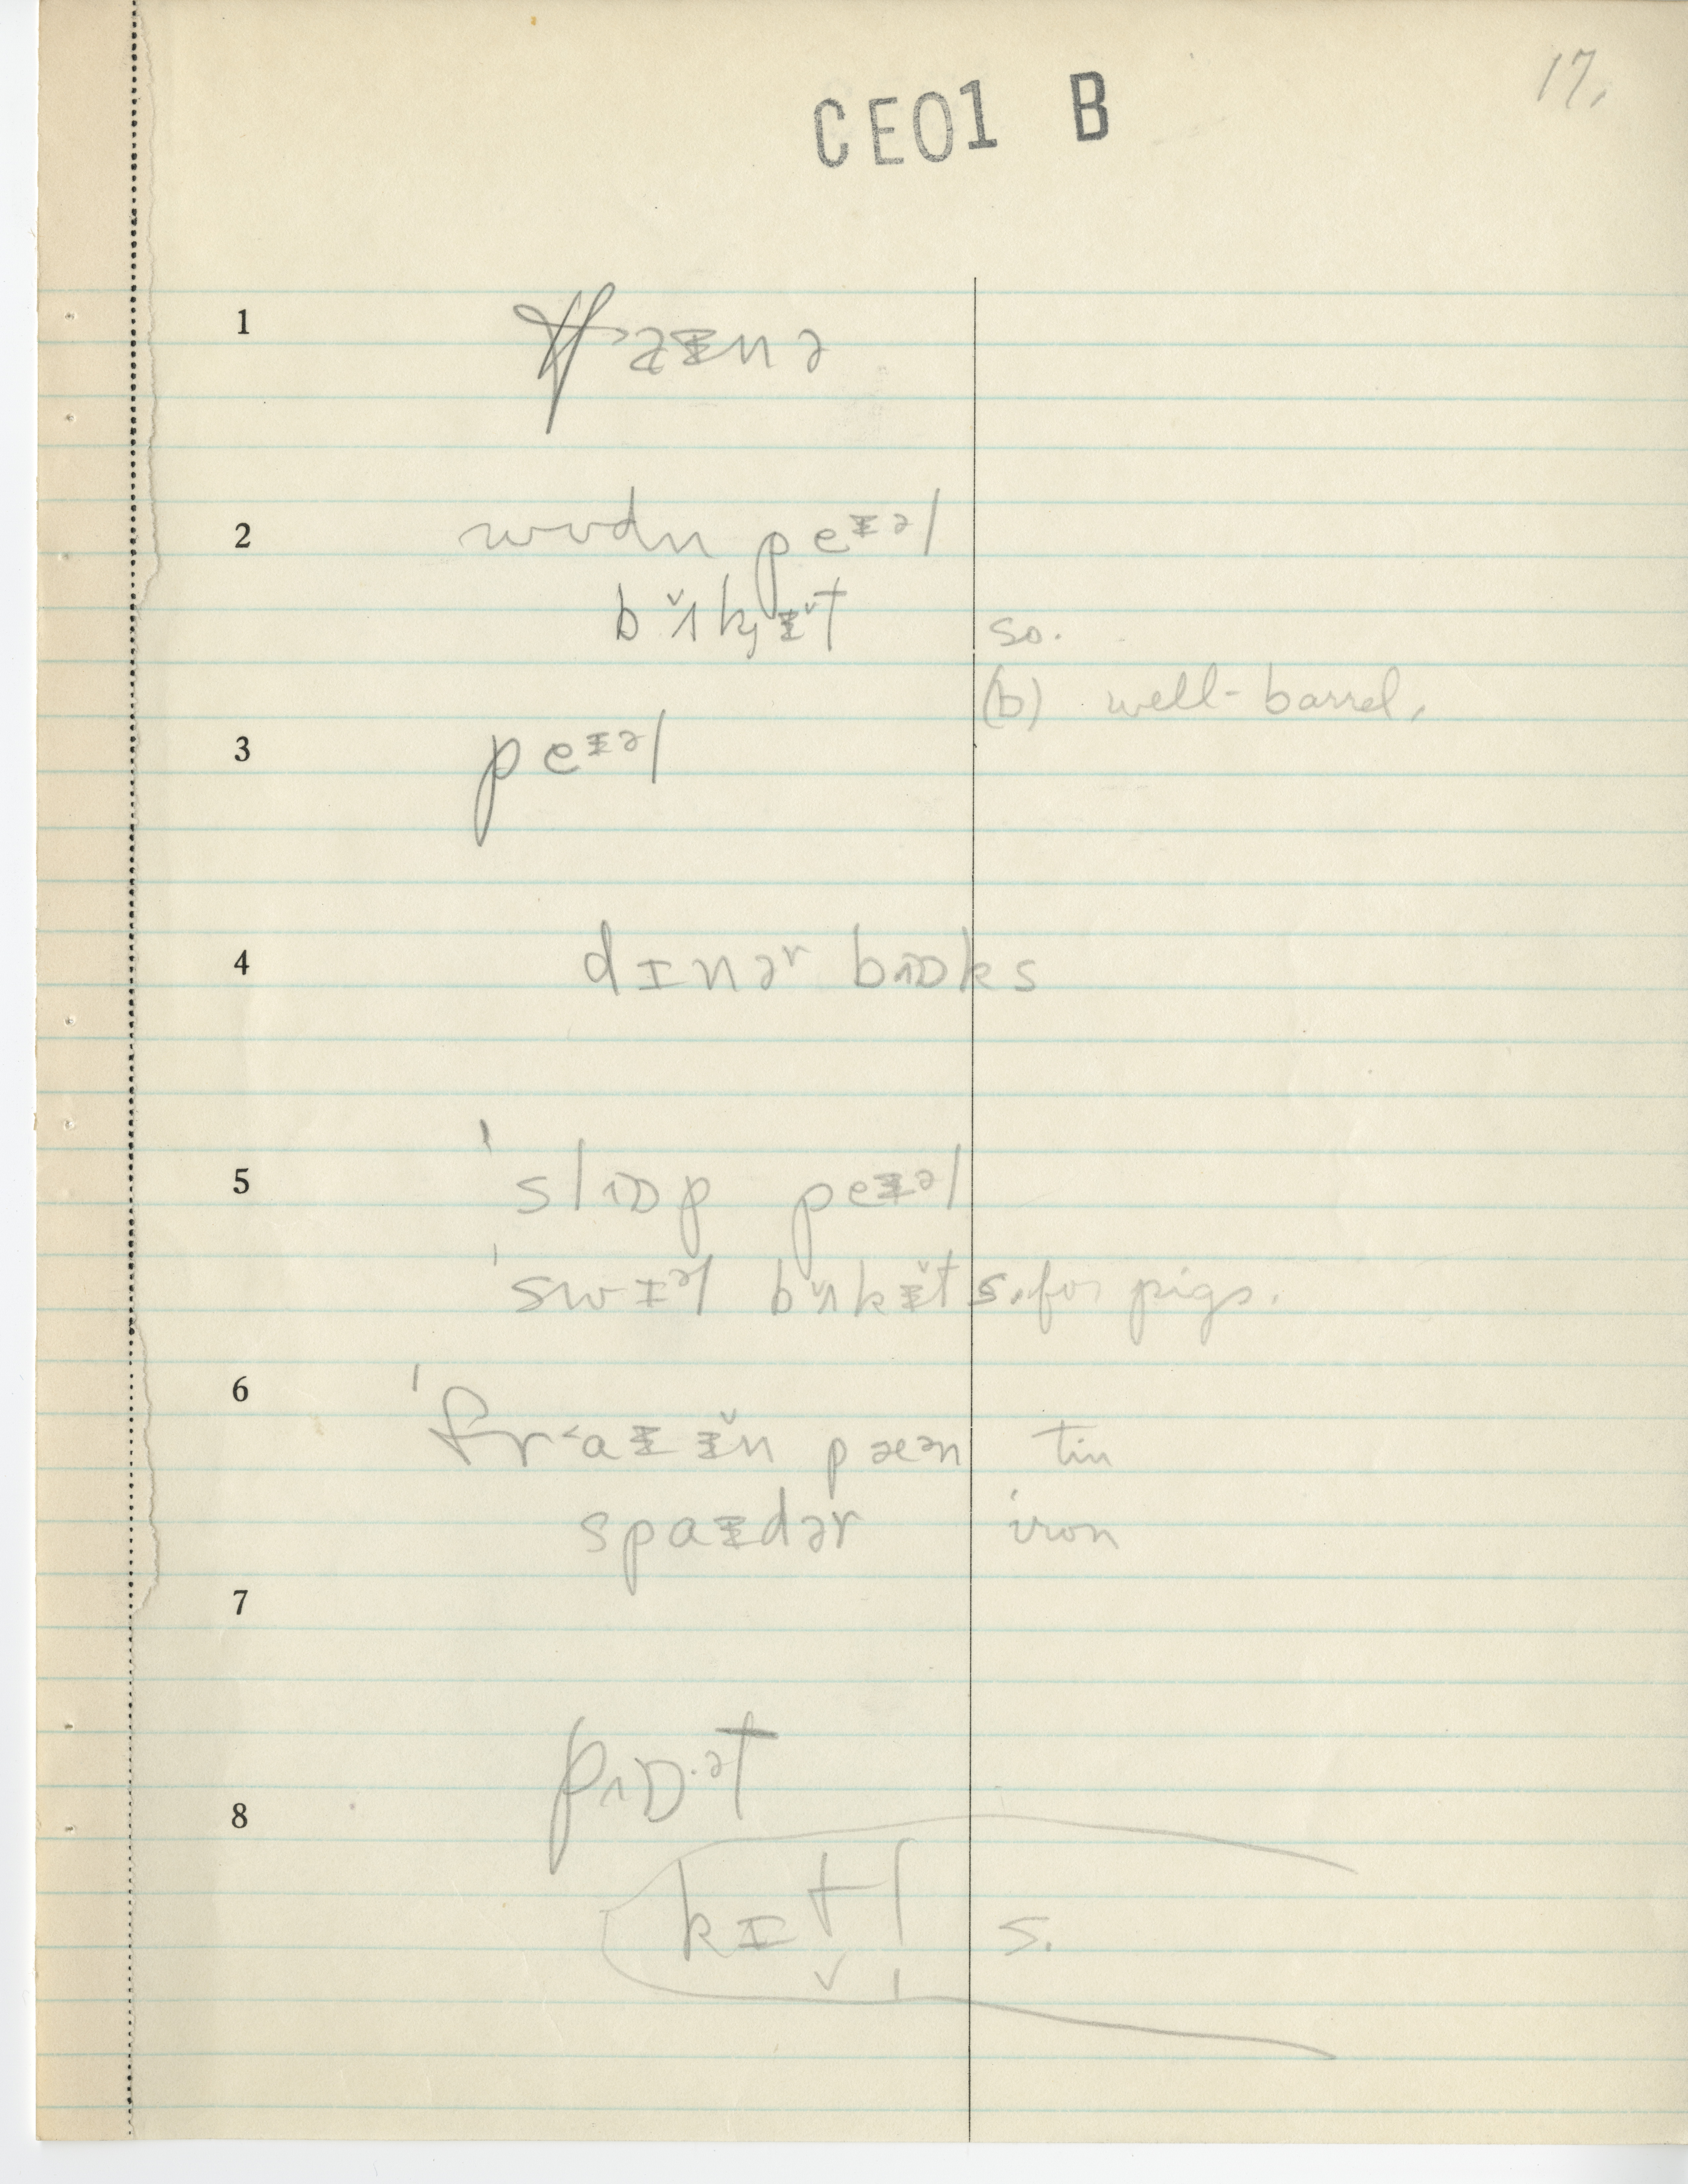 17.
CE01 B
1
2 wʊdn peᵻᵊl
bʌ̆kᵻ̆t so.
(b) well-barrel.
3 peᵻᵊl
4 dɪnəʳ bɒks
5 ˈslɒp peᵻᵊl
ˈswɪᵊl bʌ̆kᵻ̆t s. for pigs.
6 ˈfr˂aᵻ ᵻ̆n pæᵊn tin
spaᵻdər iron
7
pɒ·ᵊt
8
kɪtl s.